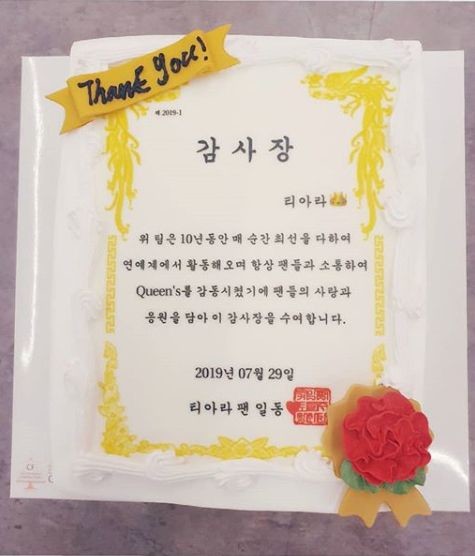 Thank you!
제 2019-1
감 사 장
티아라
위 팀은 10년동안 매 순간 최선을 다하여
연예계에서 활동해오며 항상 팬들과 소통하여
Queen's를 감동시켰기에 팬들의 사랑과
응원을 담아 이 감사장을 수여합니다.
2019년 07월 29일
티아라 팬 일동